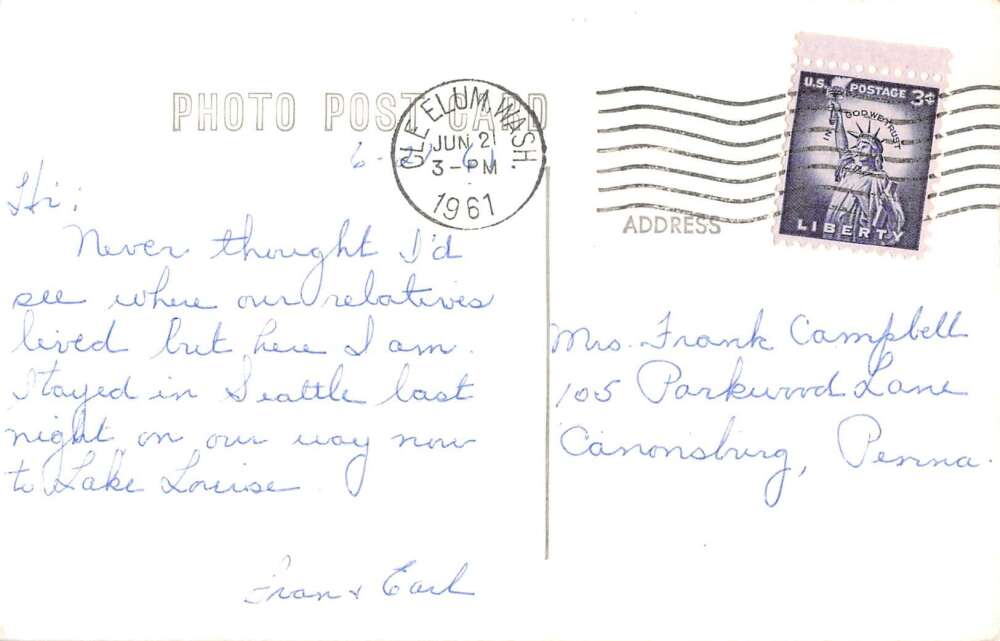 PHOTO POST CARD
CLE ELUM, WASH.
JUN 21
3-PM
1961
U.S. POSTAGE 3¢
IN GOD WE TRUST
LIBERTY
ADDRESS
Hi:
Never thought I'd
see where our relatives
lived but here I am.
Stayed in Seattle last
night on our way now
to Lake Louise.
Fran & Earl
Mrs. Frank Campbell
105 Parkwood Lane
Canonsburg, Penna.